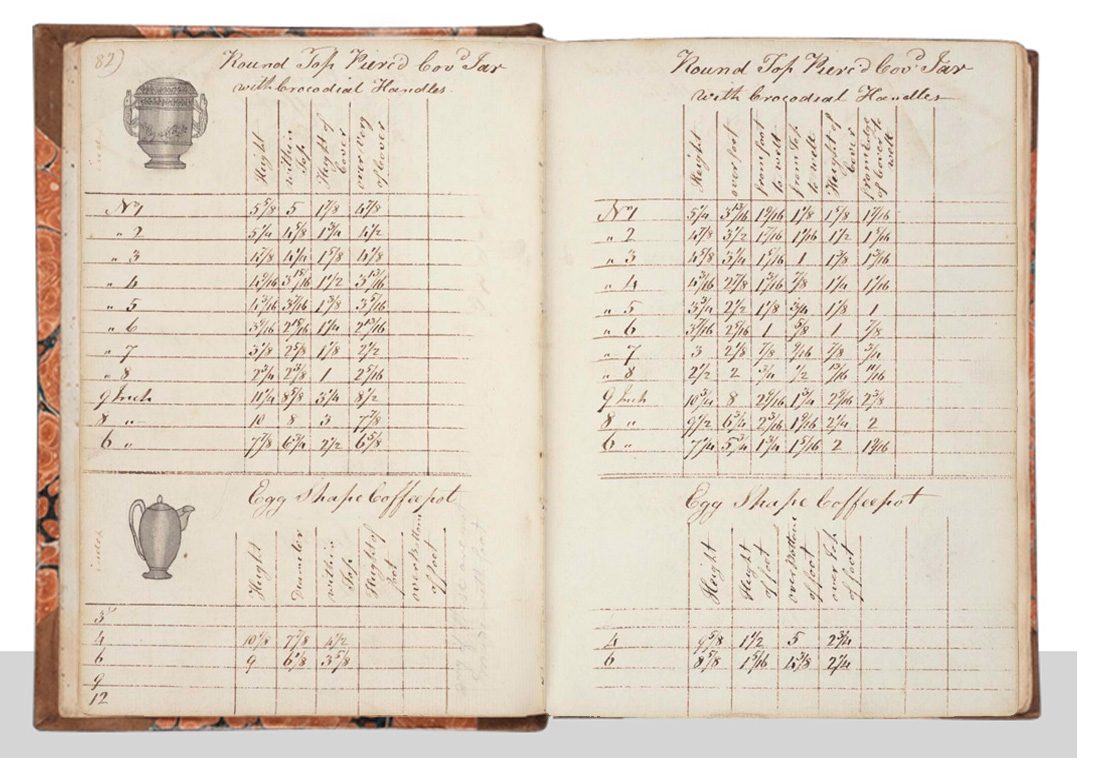 82)
Round Top Pierc'd Cov'd Jar
with Crocodial Handles
Height
within Top
Height of Cover
over very of Cover
No 1 5 5/8 5 1 7/8 4 7/8
" 2 5 1/4 4 5/8 1 3/4 4 1/2
" 3 4 7/8 4 1/4 1 5/8 4 1/8
" 4 4 9/16 3 15/16 1 1/2 3 13/16
" 5 4 3/16 3 9/16 1 3/8 3 5/16
" 6 3 9/16 2 15/16 1 1/4 2 13/16
" 7 3 1/8 2 5/8 1 1/8 2 1/2
" 8 2 3/4 2 3/8 1 2 5/16
9 Inch 11 1/4 8 5/8 3 1/4 8 1/2
8 " 10 8 3 7 7/8
6 " 7 7/8 6 3/4 2 1/2 6 5/8
index
Egg Shape Coffeepot
Height
Diameter
within Top
Height of foot
over Bottom of foot
3
4 10 1/8 7 7/8 4 1/2
6 9 6 7/8 3 5/8
9
12
index
Round Top Pierc'd Cov'd Jar
with Crocodial Handles
Height
over foot
from foot to welt
from Top to welt
Height of Cover
from Edge of Cover to welt
No 1 5 1/4 3 13/16 1 9/16 1 1/8 1 5/8 1 7/16
" 2 4 7/8 3 1/2 1 7/16 1 1/16 1 1/2 1 5/16
" 3 4 5/8 3 1/4 1 5/16 1 1 3/8 1 3/16
" 4 4 3/16 2 7/8 1 3/16 7/8 1 1/4 1 1/16
" 5 3 3/4 2 1/2 1 1/8 3/4 1 1/8 1
" 6 3 7/16 2 5/16 1 5/8 1 7/8
" 7 3 2 1/8 7/8 9/16 7/8 3/4
" 8 2 1/2 2 3/4 1/2 13/16 11/16
9 Inch 10 3/4 8 2 9/16 1 3/4 2 9/16 2 3/8
8 " 9 1/2 6 3/4 2 3/16 1 9/16 2 1/4 2
6 " 7 1/4 5 3/4 1 3/4 1 5/16 2 1 9/16
Egg Shape Coffeepot
Height
Height of foot
over Bottom of foot
over Top of foot
4 9 5/8 1 1/2 5 2 3/4
6 8 5/8 1 5/16 4 3/8 2 1/4